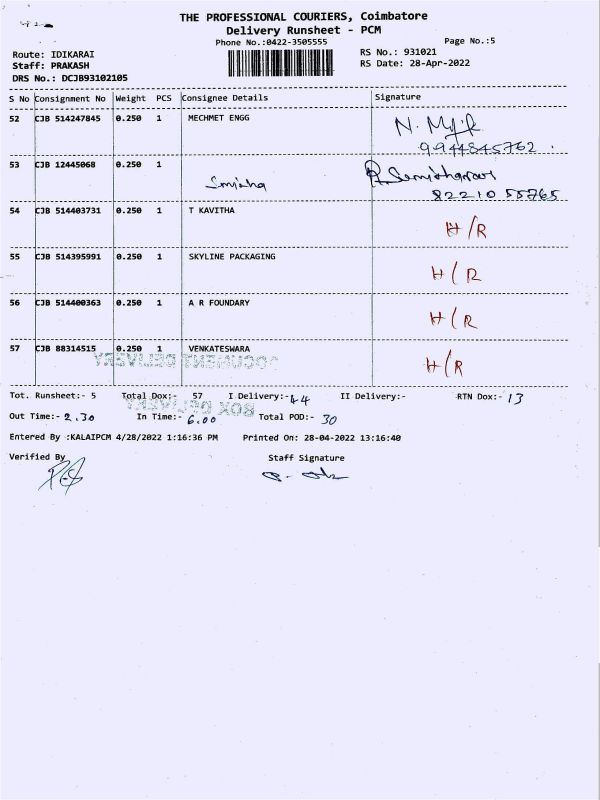 THE PROFESSIONAL COURIERS, Coimbatore
Delivery Runsheet - PCM
Phone No.:0422-3505555
Page No.:5
Route: IDIKARAI
RS No.: 931021
Staff: PRAKASH
RS Date: 28-Apr-2022
DRS No.: DCJB93102105
S No Consignment No Weight PCS Consignee Details Signature
52 CJB 514247845 0.250 1 MECHMET ENGG
9944845762
53 CJB 12445068 0.250 1
82210 55765
54 CJB 514403731 0.250 1 T KAVITHA H/R
55 CJB 514395991 0.250 1 SKYLINE PACKAGING H/R
56 CJB 514400363 0.250 1 A R FOUNDARY H/R
57 CJB 88314515 0.250 1 VENKATESWARA H/R
DOCUMENT DELIVERY
Tot. Runsheet:- 5 Total Dox:- 57 I Delivery:- 44 II Delivery:- RTN Dox:- 13
BOX DELIVERY
Out Time:- 2.30 In Time:- 6.00 Total POD:- 30
Entered By :KALAIPCM 4/28/2022 1:16:36 PM Printed On: 28-04-2022 13:16:40
Verified By Staff Signature